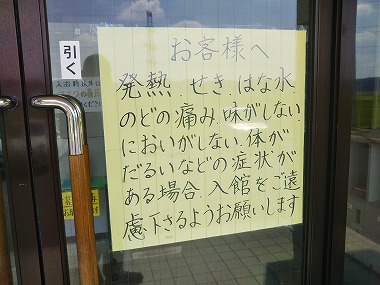 お客様へ
発熱、せき、はな水
のどの痛み、味がしない、
においがしない、体が
だるいなどの症状が
ある場合、入館をご遠
慮下さるようお願いします
引く